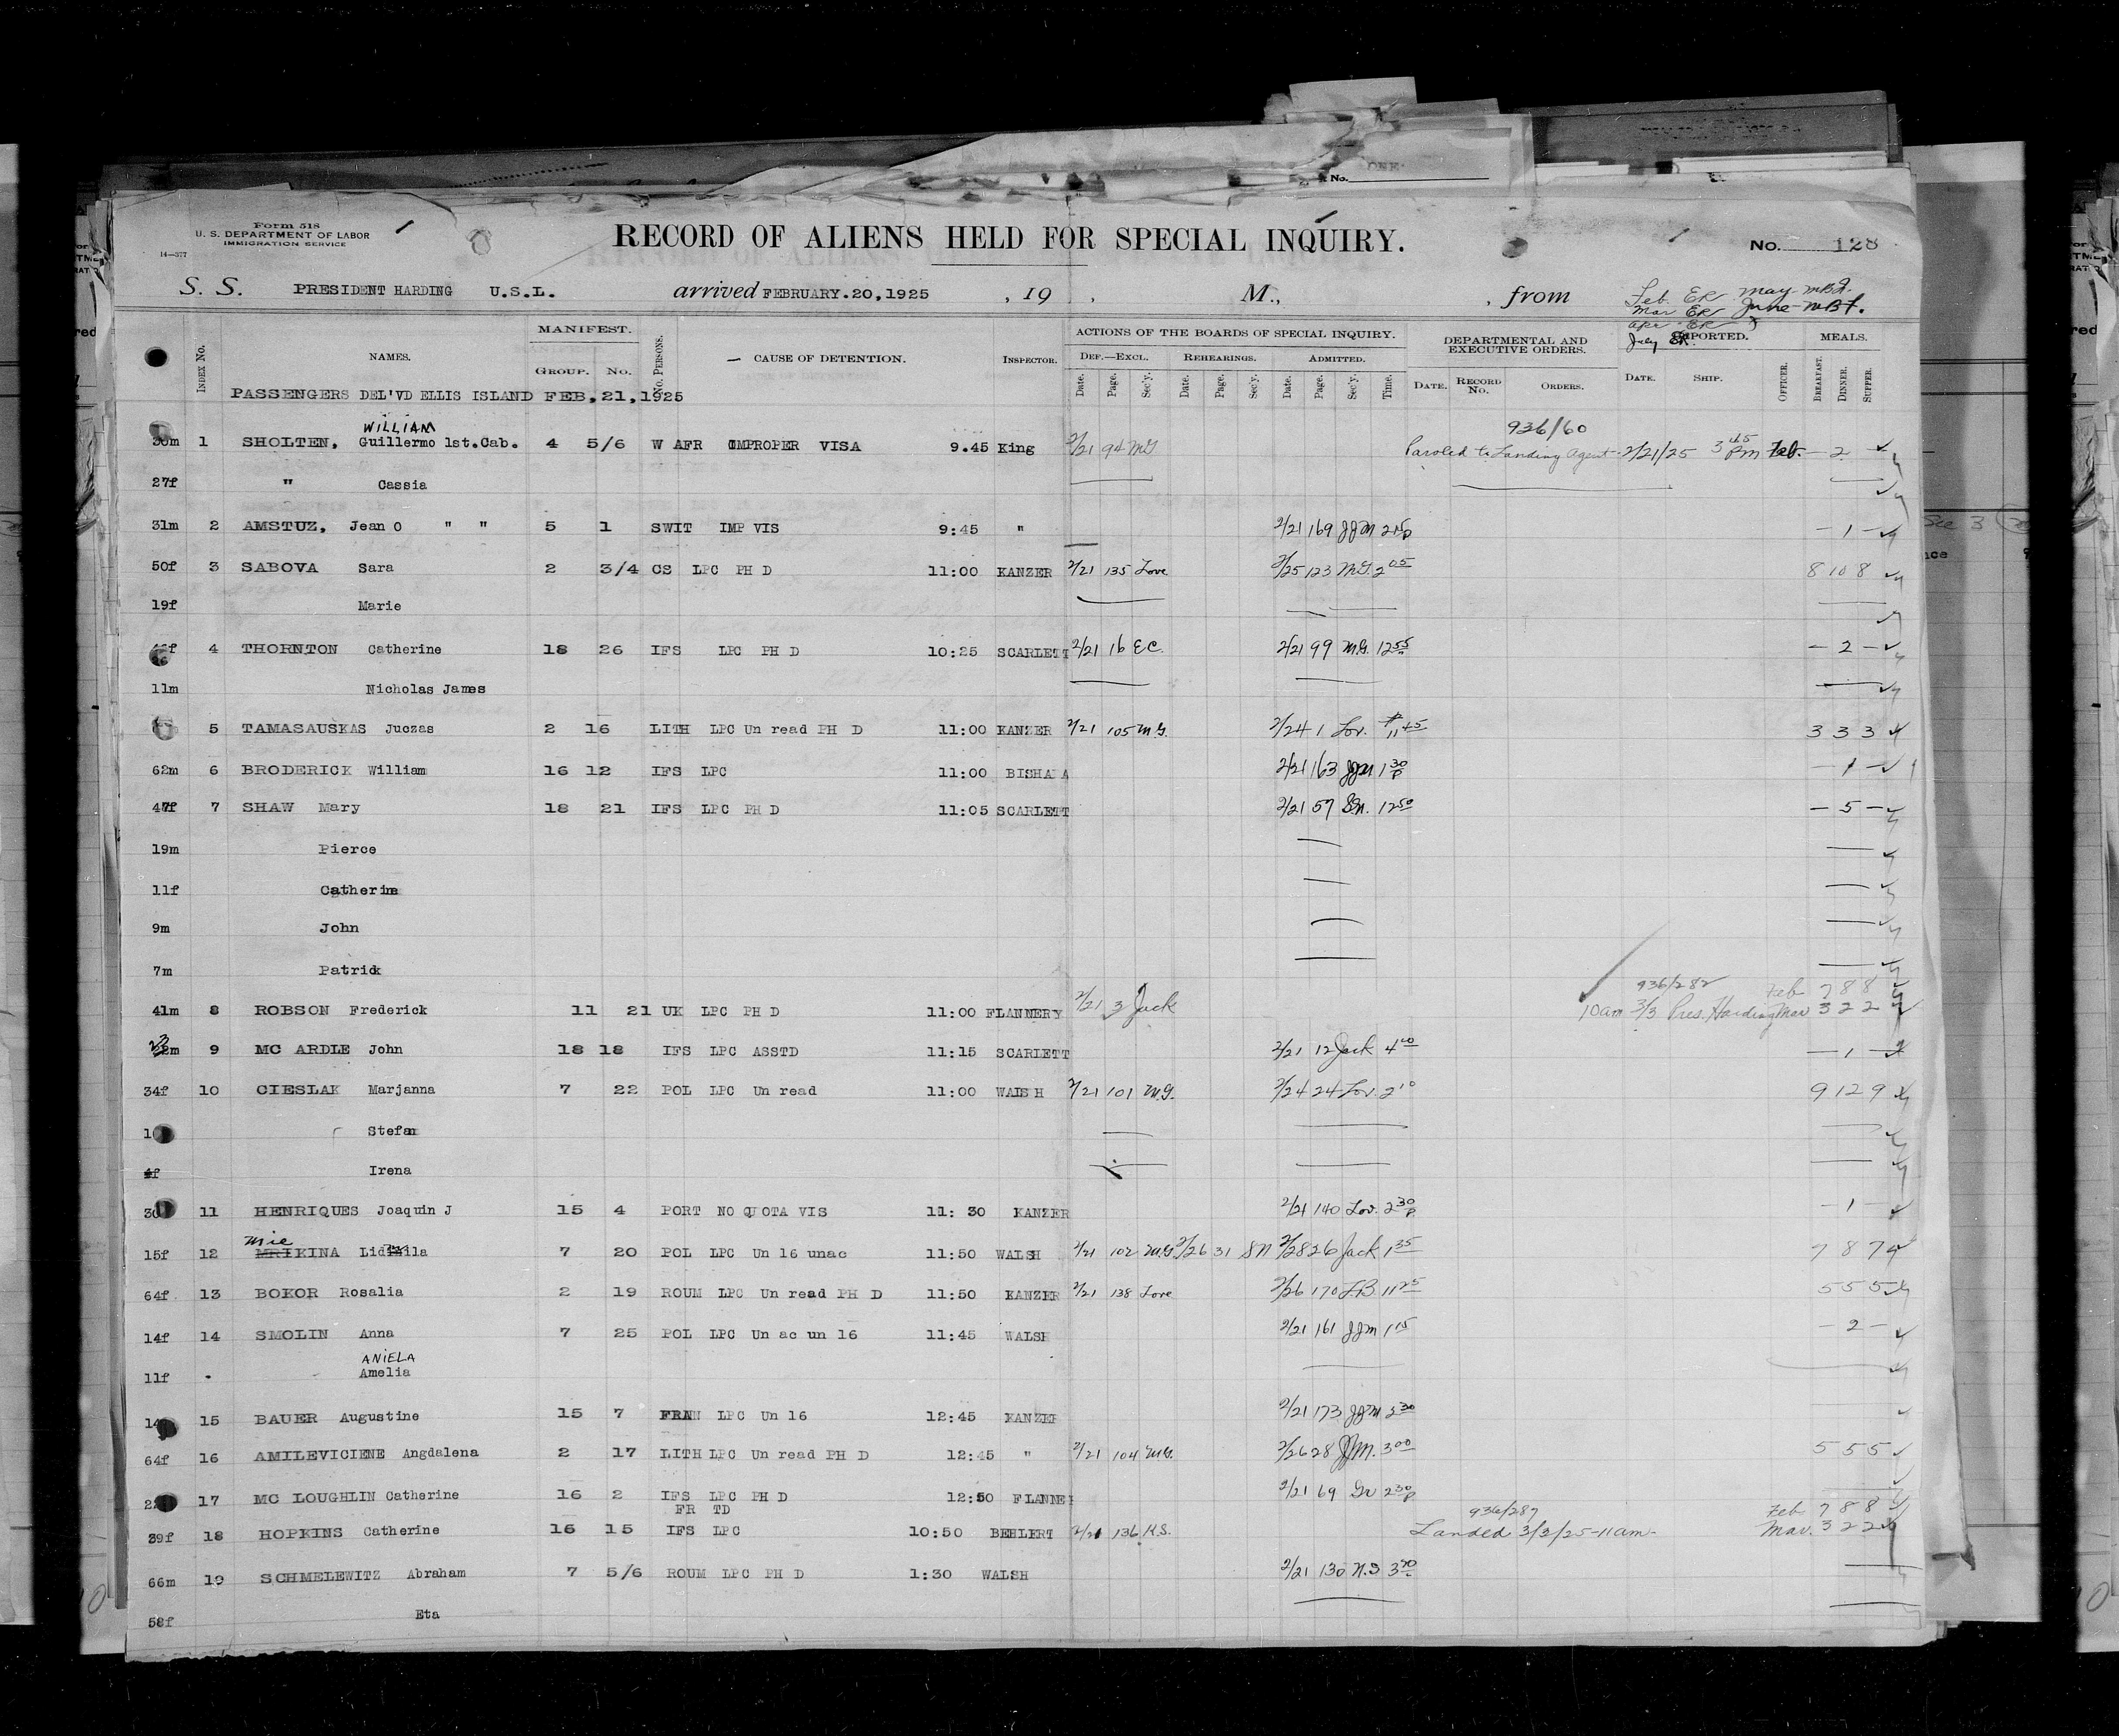 Form 518
U. S. DEPARTMENT OF LABOR
IMMIGRATION SERVICE
14—377
RECORD OF ALIENS HELD FOR SPECIAL INQUIRY.
No. 128
S. S. PRESIDENT HARDING U.S.L. arrived FEBRUARY.20,1925 , 19 , M., , from
Feb. ER may-MBF.
Mar ER June-MBF.
apr ER
July ER
INDEX No. NAMES. MANIFEST. GROUP. No. No. PERSONS. CAUSE OF DETENTION. INSPECTOR. ACTIONS OF THE BOARDS OF SPECIAL INQUIRY. DEPARTMENTAL AND EXECUTIVE ORDERS. DEPORTED. MEALS.
DEF.—EXCL. REHEARINGS. ADMITTED.
Date. Page. Sec'y. Date. Page. Sec'y. Date. Page. Sec'y. Time. DATE. RECORD No. ORDERS. DATE. SHIP. OFFICER. BREAKFAST. DINNER. SUPPER.
PASSENGERS DEL'VD ELLIS ISLAND FEB,21,1925
WILLIAM 936/60
1 SHOLTEN, Guillermo 1st.Cab. 4 5/6 W AFR IMPROPER VISA 9.45 King 2/21 94 MG Paroled to Landing Agent 2/21/25 3 45 PM Feb. — 2
27f " Cassia
31m 2 AMSTUZ, Jean O " " 5 1 SWIT IMP VIS 9:45 " 2/21 169 JJM — 1 —
50f 3 SABOVA Sara 2 3/4 CS LPC PH D 11:00 KANZER 2/21 135 Love 2/25 123 MG 2 05 8 10 8
19f Marie
4 THORNTON Catherine 18 26 IFS LPC PH D 10:25 SCARLETT 2/21 16 EC. 2/21 99 M.G. 12 55 — 2 —
11m Nicholas James
5 TAMASAUSKAS Juozas 2 16 LITH LPC Un read PH D 11:00 KANZER 2/21 105 M.G. 2/24 1 Lov. 11 45 3 3 3
62m 6 BRODERICK William 16 12 IFS LPC 11:00 2/21 163 JJM 1 30 P — 1 —
47f 7 SHAW Mary 18 21 IFS LPC PH D 11:05 SCARLETT 2/21 57 S.N. 12 50 — 5 —
19m Pierce
11f Catherine
9m John
7m Patrick
936/282 Feb 7 8 8
41m 8 ROBSON Frederick 11 21 UK LPC PH D 11:00 FLANNERY 2/21 3 Jack 10am 3/3 Pres. Harding Mar 3 2 2
9 MC ARDLE John 18 18 IFS LPC ASSTD 11:15 SCARLETT 2/21 12 Jack 4 00 — 1 —
34f 10 CIESLAK Marjanna 7 22 POL LPC Un read 11:00 WALSH 2/21 101 M.G. 2/24 24 Lov. 2 10 9 12 9
Stefan
4f Irena
11 HENRIQUES Joaquin J 15 4 PORT NO QUOTA VIS 11: 30 KANZER 2/21 140 Lov. 2 30 P. — 1 —
Mie
15f 12 MRIKINA Lidmila 7 20 POL LPC Un 16 unac 11:50 WALSH 2/21 102 M.G. 2/26 31 SN 2/28 26 Jack 1 35 7 8 7
64f 13 BOKOR Rosalia 2 19 ROUM LPC Un read PH D 11:50 KANZER 2/21 138 Love 2/26 170 11 25 5 5 5
14f 14 SMOLIN Anna 7 25 POL LPC Un ac un 16 11:45 WALSH 2/21 161 JJM 1 15 — 2 —
ANIELA
11f Amelia
15 BAUER Augustine 15 7 FRAN LPC Un 16 12:45 KANZER 2/21 173 JJM 30
64f 16 AMILEVICIENE Angdalena 2 17 LITH LPC Un read PH D 12:45 " 2/21 104 M.G. 2/26 28 JJM. 3 00 5 5 5
17 MC LOUGHLIN Catherine 16 2 IFS LPC PH D 12:50 FLANNE 2/21 69 Gr 2 30 P
FR TD 936/287 Feb 7 8 8
39f 18 HOPKINS Catherine 16 15 IFS LPC 10:50 BEHLERT 2/21 136 H.S. Landed 3/3/25-11am- Mar. 3 2 2
66m 19 SCHMELEWITZ Abraham 7 5/6 ROUM LPC PH D 1:30 WALSH 2/21 130 N.S
58f Eta